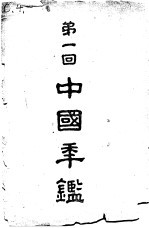 第一回中國年鑑